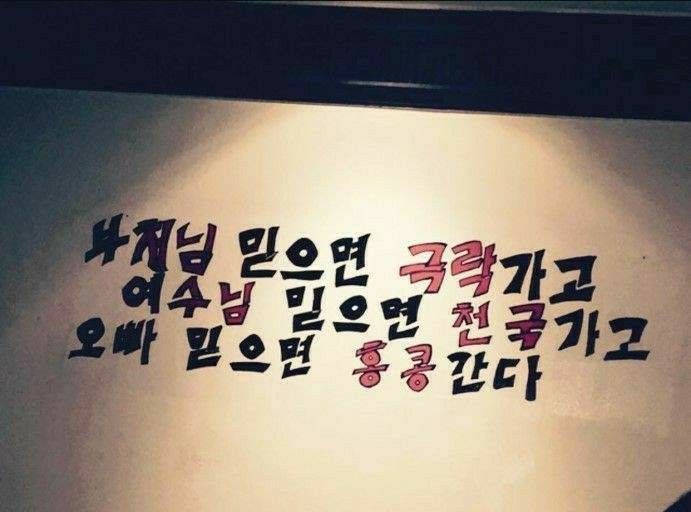 부처님 믿으면 극락가고
예수님 믿으면 천국가고
오빠 믿으면 홍콩간다